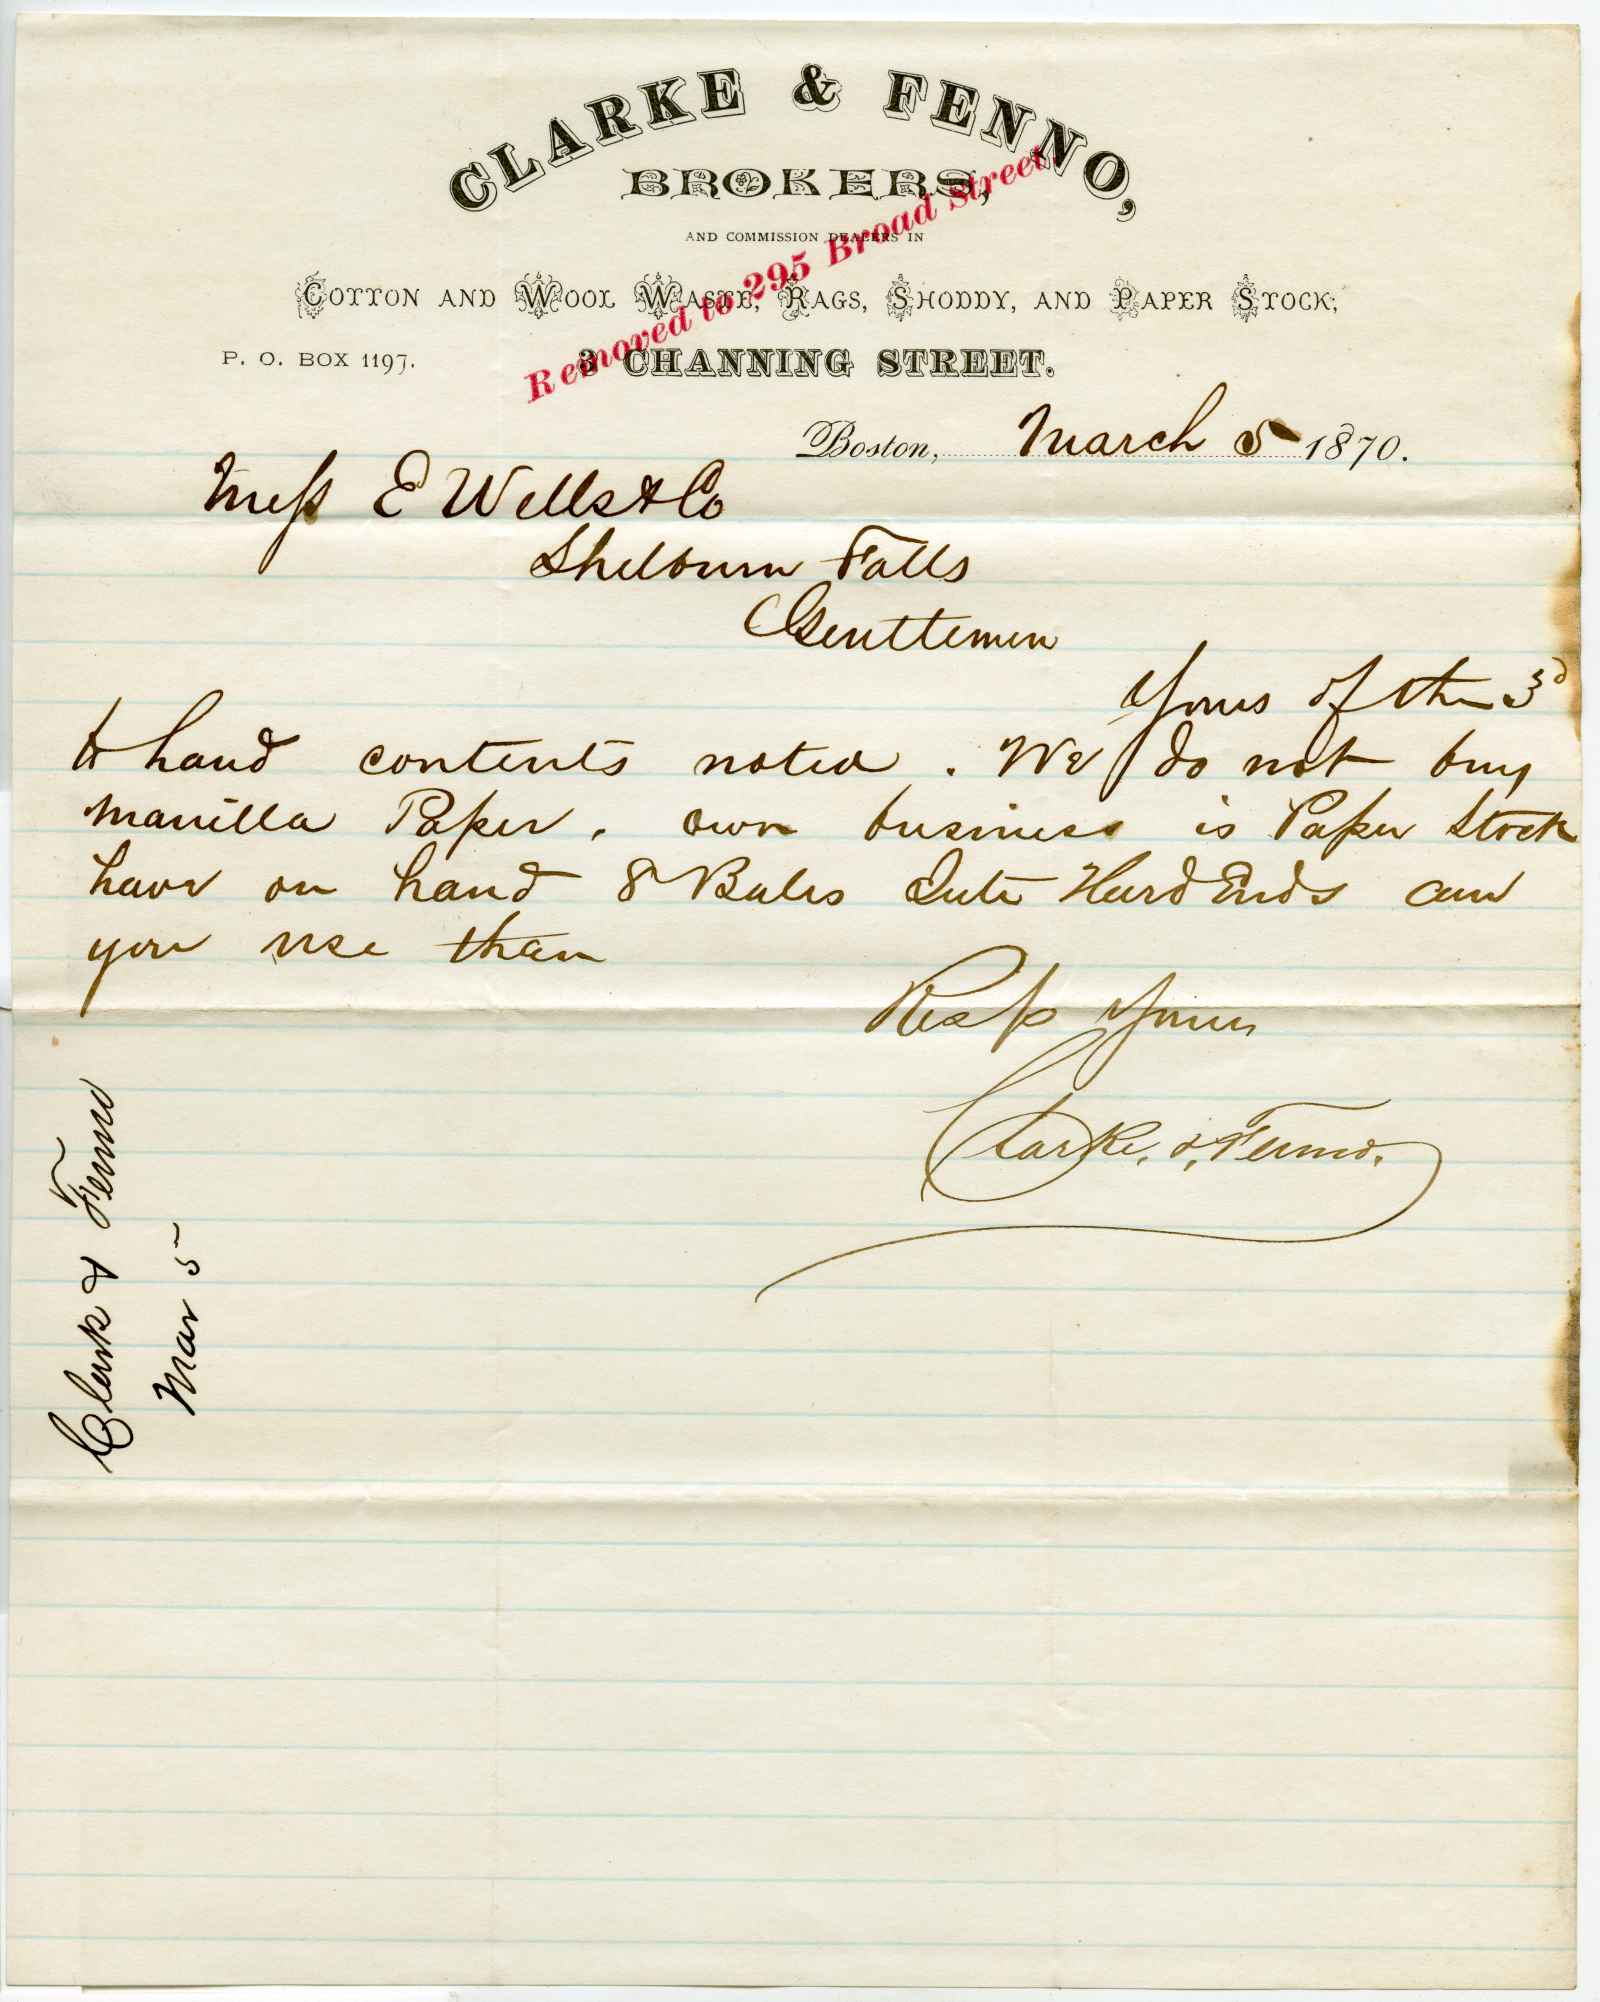 CLARKE & FENNO,
BROKERS,
AND COMMISSION DEALERS IN
COTTON AND WOOL WASTE, RAGS, SHODDY, AND PAPER STOCK,
P. O. BOX 1197.
3 CHANNING STREET.
Removed to 295 Broad Street.
Boston, March 5 1870.
Mess E Wells & Co
Shelburn Falls
Gentlemen
Yours of the 3d
to hand contents noted. We do not buy
Manilla Paper. own business is Paper Stock
have on hand 8 Bales Jute Hard Ends can
you use than
Resp Yours
Clarke & Fenno.
Clark & Fenno
Mar 5